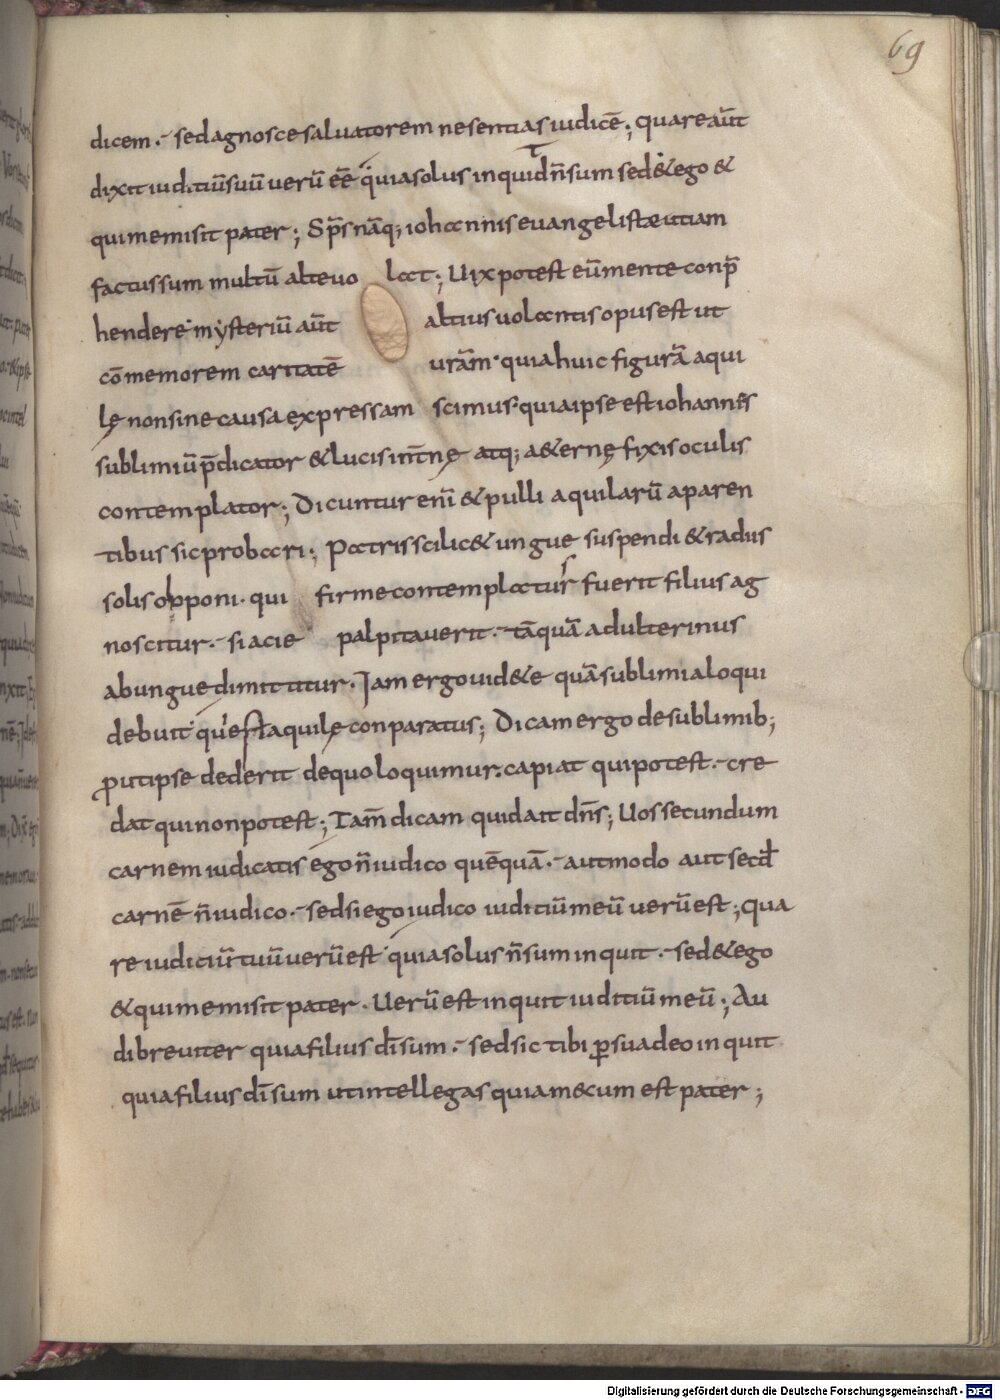 69
dicem·- sed agnosce salvatorem ne sentias iudicē; quare aūt
dixit iuditiū suū verū eē· quia solus inquid n̄ sum sed & ego &
qui me misit pater; Sp̄s nāq; iohannis evangelistę utiam
factus sum multū altevo lat; Uix potest eū mente conp̄
hendere mysteriū aūt altius volantis opus est ut
cōmemorem caritatē urām· quia huic figurā aqui
lę non sine causa expressam scimus· quia ipse est iohannes
sublimiū p̄dicator & lucis int̄nę atq; a&ernę fixis oculis
contemplator; Dicuntur enī & pulli aquilarū a paren
tibus sic probari; Patris scilic& ungue suspendi & radus
solis opponi· qui firme contemplatus fuerit filius ag
noscitur·- si acie palpitaverit·- tāquā adulterinus
ab ungue dimittitur· Iam ergo uid&e quā sublimia loqui
debuit qui est aquilę conparatus; Dicam ergo de sublimib;
prout ipse dederit de quo loquimur· capiat qui potest·- cre
dat qui non potest; Tam̄ dicam quid ait dn̄s; Uos secundum
carnem iudicatis ego n̄ iudico quēquā·- aut modo aut secd̄
carnē n̄ iudico·- sed si ego iudico iuditiū meū verū est; qua
re iudiciū tuū verū est quia solus n̄ sum inquit·- sed & ego
& qui me misit pater· Uerū est inquit iuditiū meū; Au
di breviter quia filius dī sum·- sed sic tibi p̄suadeo inquit
quia filius dī sum ut intellegas quia mecum est pater;
Digitalisierung gefördert durch die Deutsche Forschungsgemeinschaft - DFG